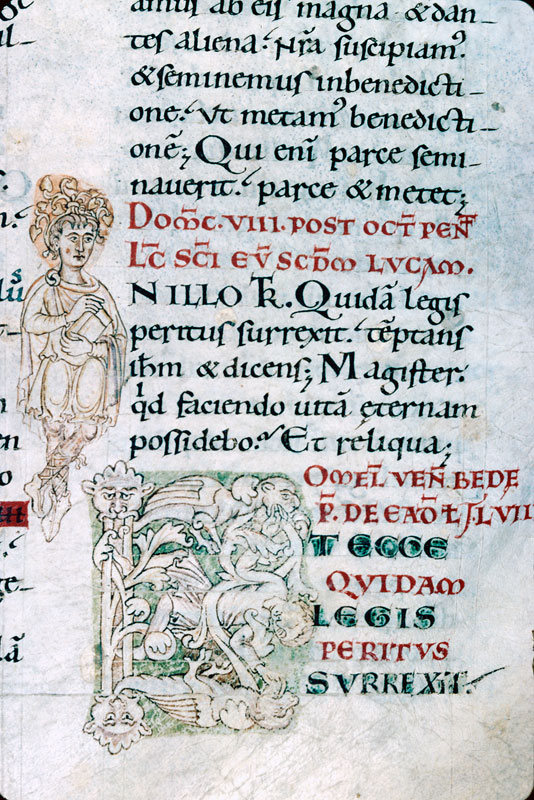 amus ab eis magna & dan-
tes aliena. Nr̄a suscipiam᷒.
& seminemus inbenedicti-
one. Ut metam᷒ benedicti-
onē; Qui enī parce semi-
naverit. parce & metet;
DOM̄C. VIII. POST OCT̄ PEN̄T
LC̄ SC̄I EV̄ SCD̄M LVCAM.
N ILLO TR̄. Quidā legis
peritus surrexit. tēptans
ih̄m & dicens; Magister.
qd̍ faciendo uitā ęternam
possidebo. Et reliqua;
OMEL̄ VEN̄. BEDE
P̄. DE EAD̄ Ł
E
T ECCE
QVIDAM
LEGIS
PERITVS
SVRREXIT.